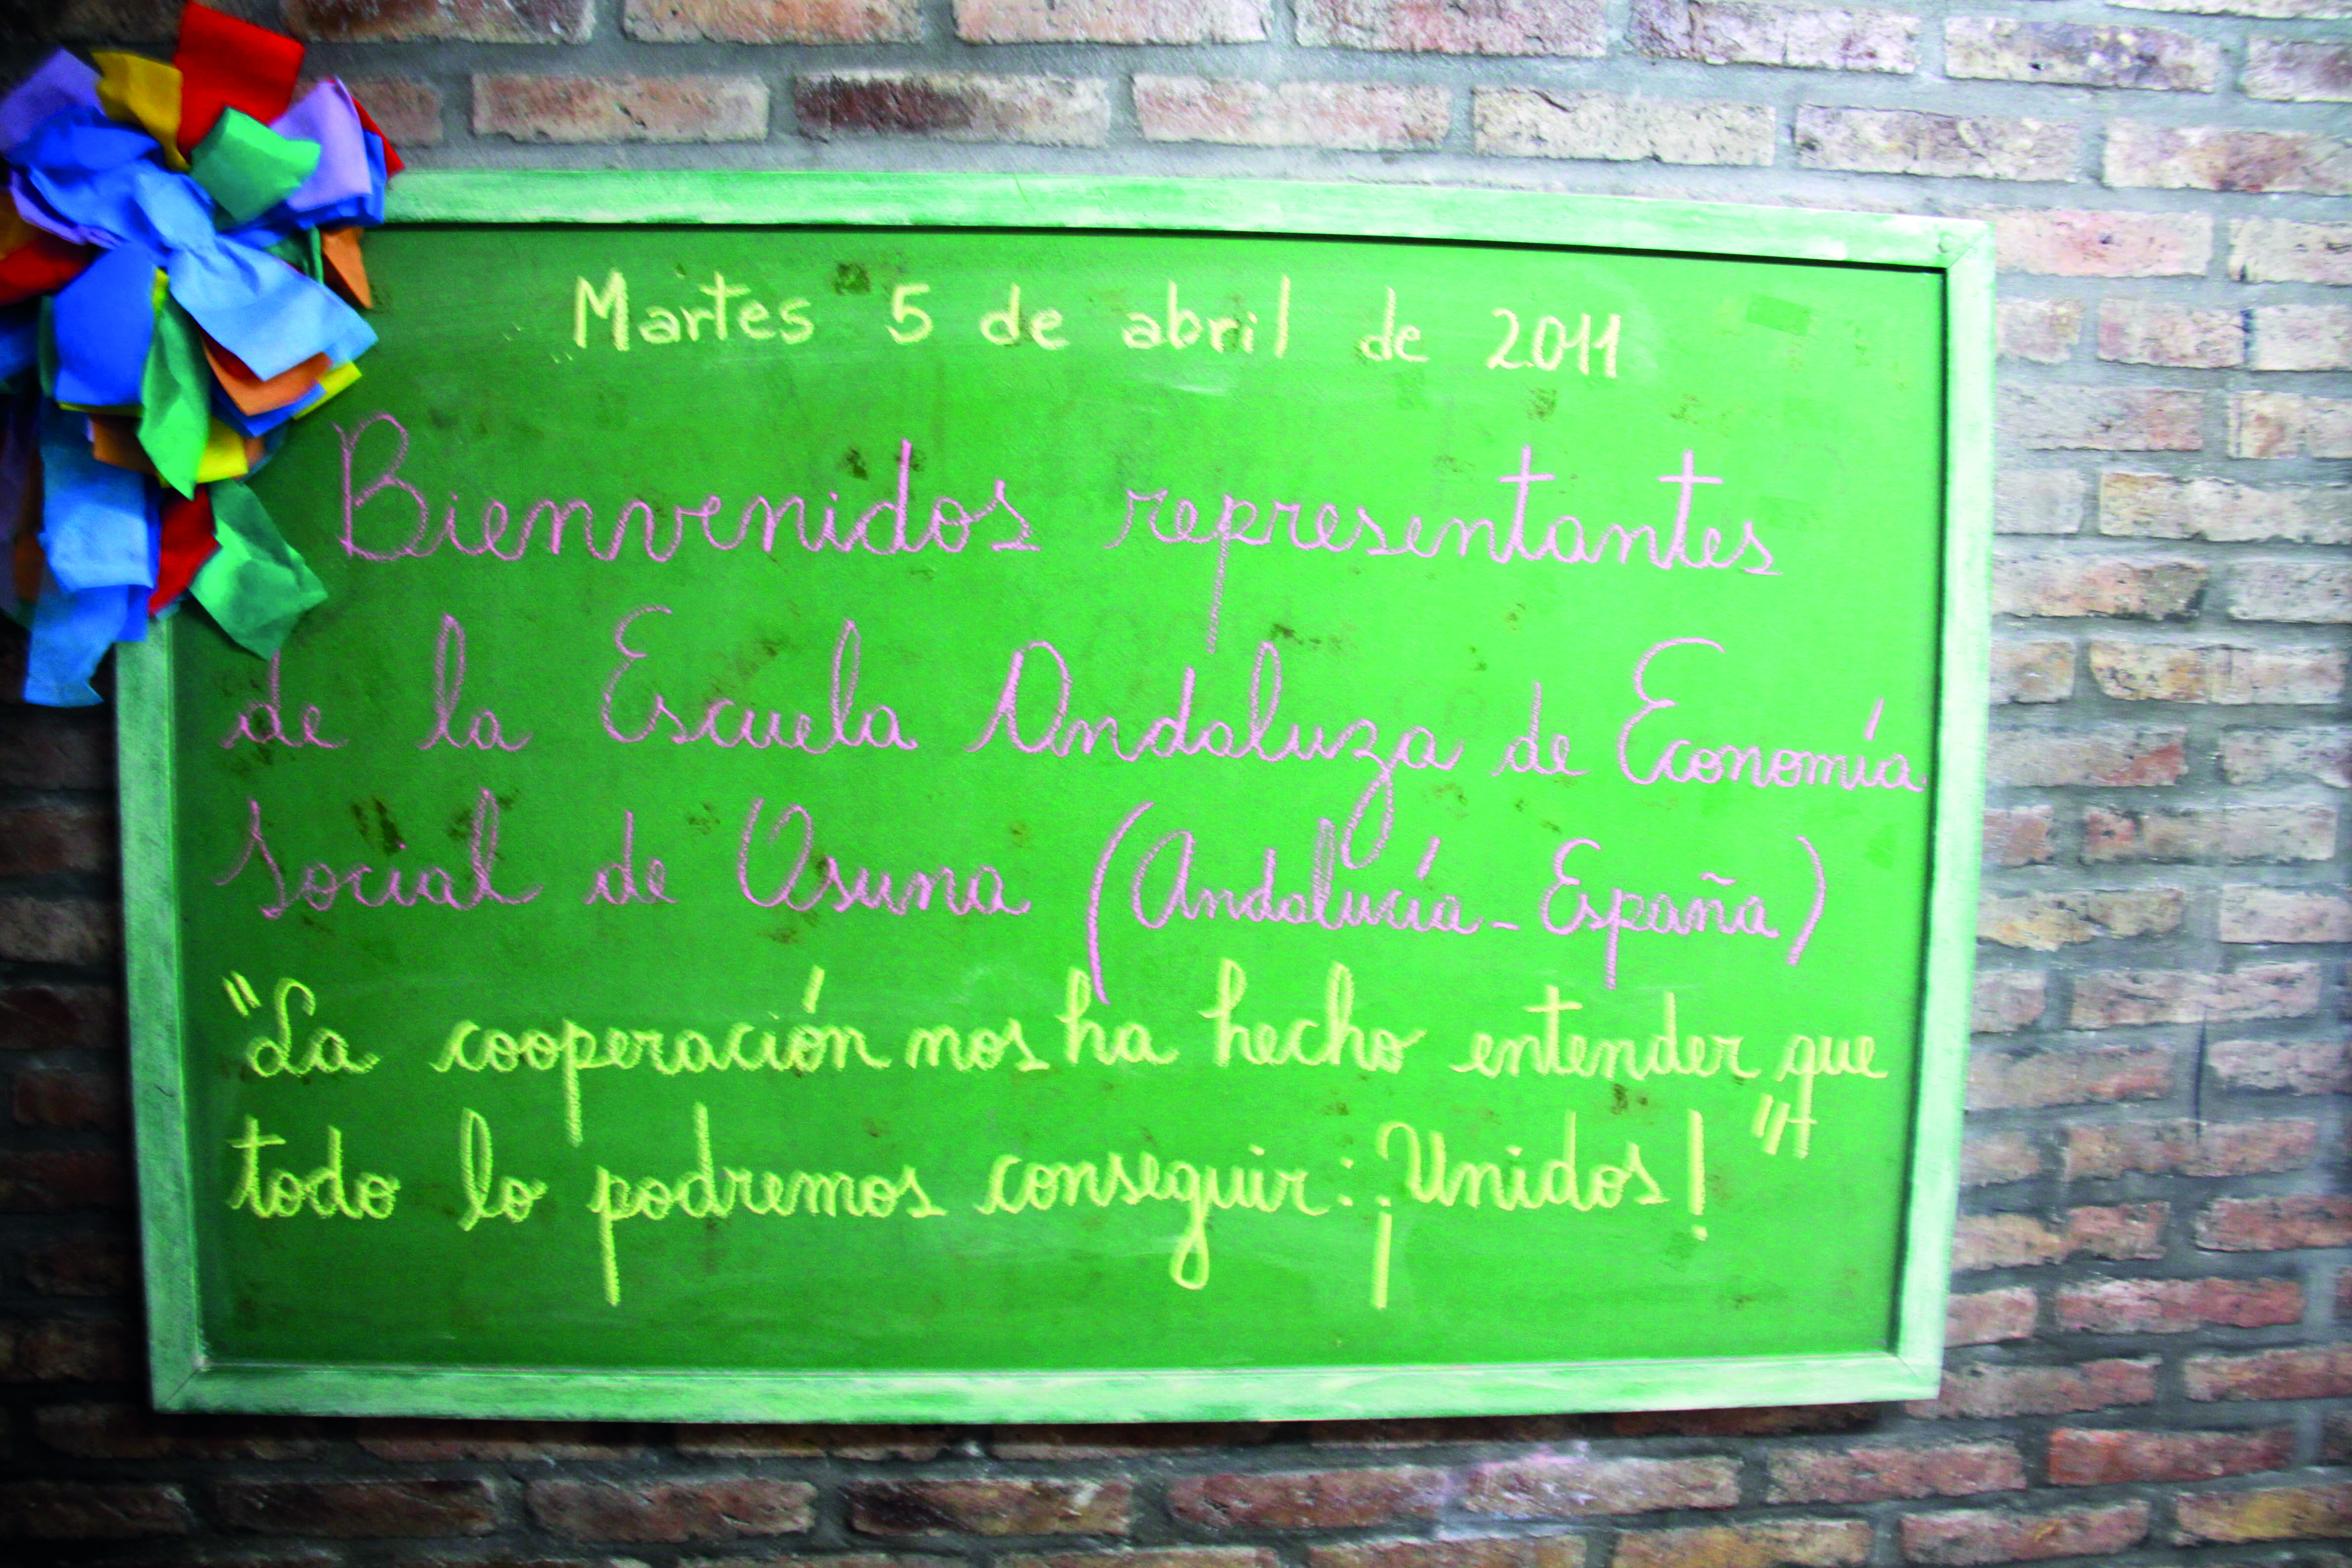 Martes 5 de abril de 2011
Bienvenidos representantes
de la Escuela Andaluza de Economía
Social de Osuna (Andalucía - España)
"La cooperación nos ha hecho entender que
todo lo podremos conseguir: ¡Unidos!"